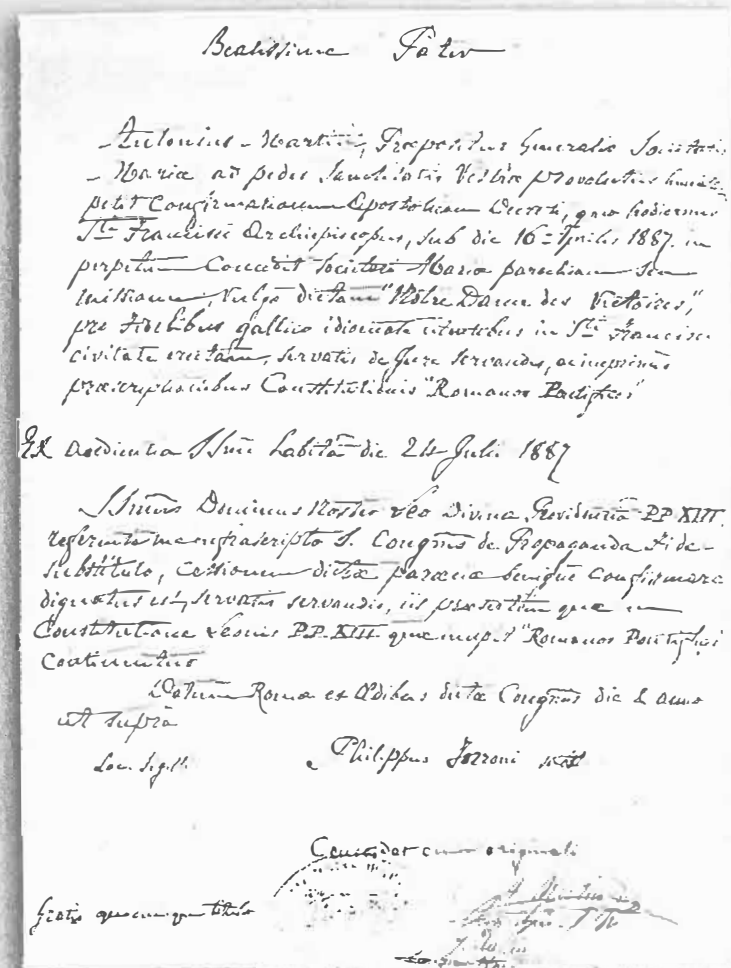 Beatissime Pater
Antonius Martin, Præpositus Generalis Societatis
Mariæ ad pedes Sanctitatis Vestræ provolutus humil
petit Confirmationem Apostolicam Decreti, quo hodiernus
Sti Francisci Archiepiscopus, sub die 16a Aprilis 1887 in
perpetuum Concedit Societati Mariæ parochiam seu
missionem, vulgo dictam "Nôtre Dame des Victoires",
pro fidelibus gallico idiomate utentibus in Sti Francisci
civitate erectam, servatis de jure servandis, ac imprimis
præscriptionibus Constitutionis "Romanos Pontifices"
Ex Audientia SSmi habitâ die 24 Julii 1887
SSmus Dominus Noster Leo Divina Providentiâ PP. XIII.
referente me infrascripto S. Congnis de Propaganda Fide
substituto, cessionem dictæ parœciæ benigne confirmare
dignatus est, servatis servandis, iis præsertim quæ in
Constitutione Leonis PP. XIII quæ incipit "Romanos Pontifices"
continentur
Datum Romæ ex Ædibus dictæ Congnis die & anno
ut suprà
Loc. Sigilli
Philippus Torroni
Concordat cum originali
Gratis quocumque titulo